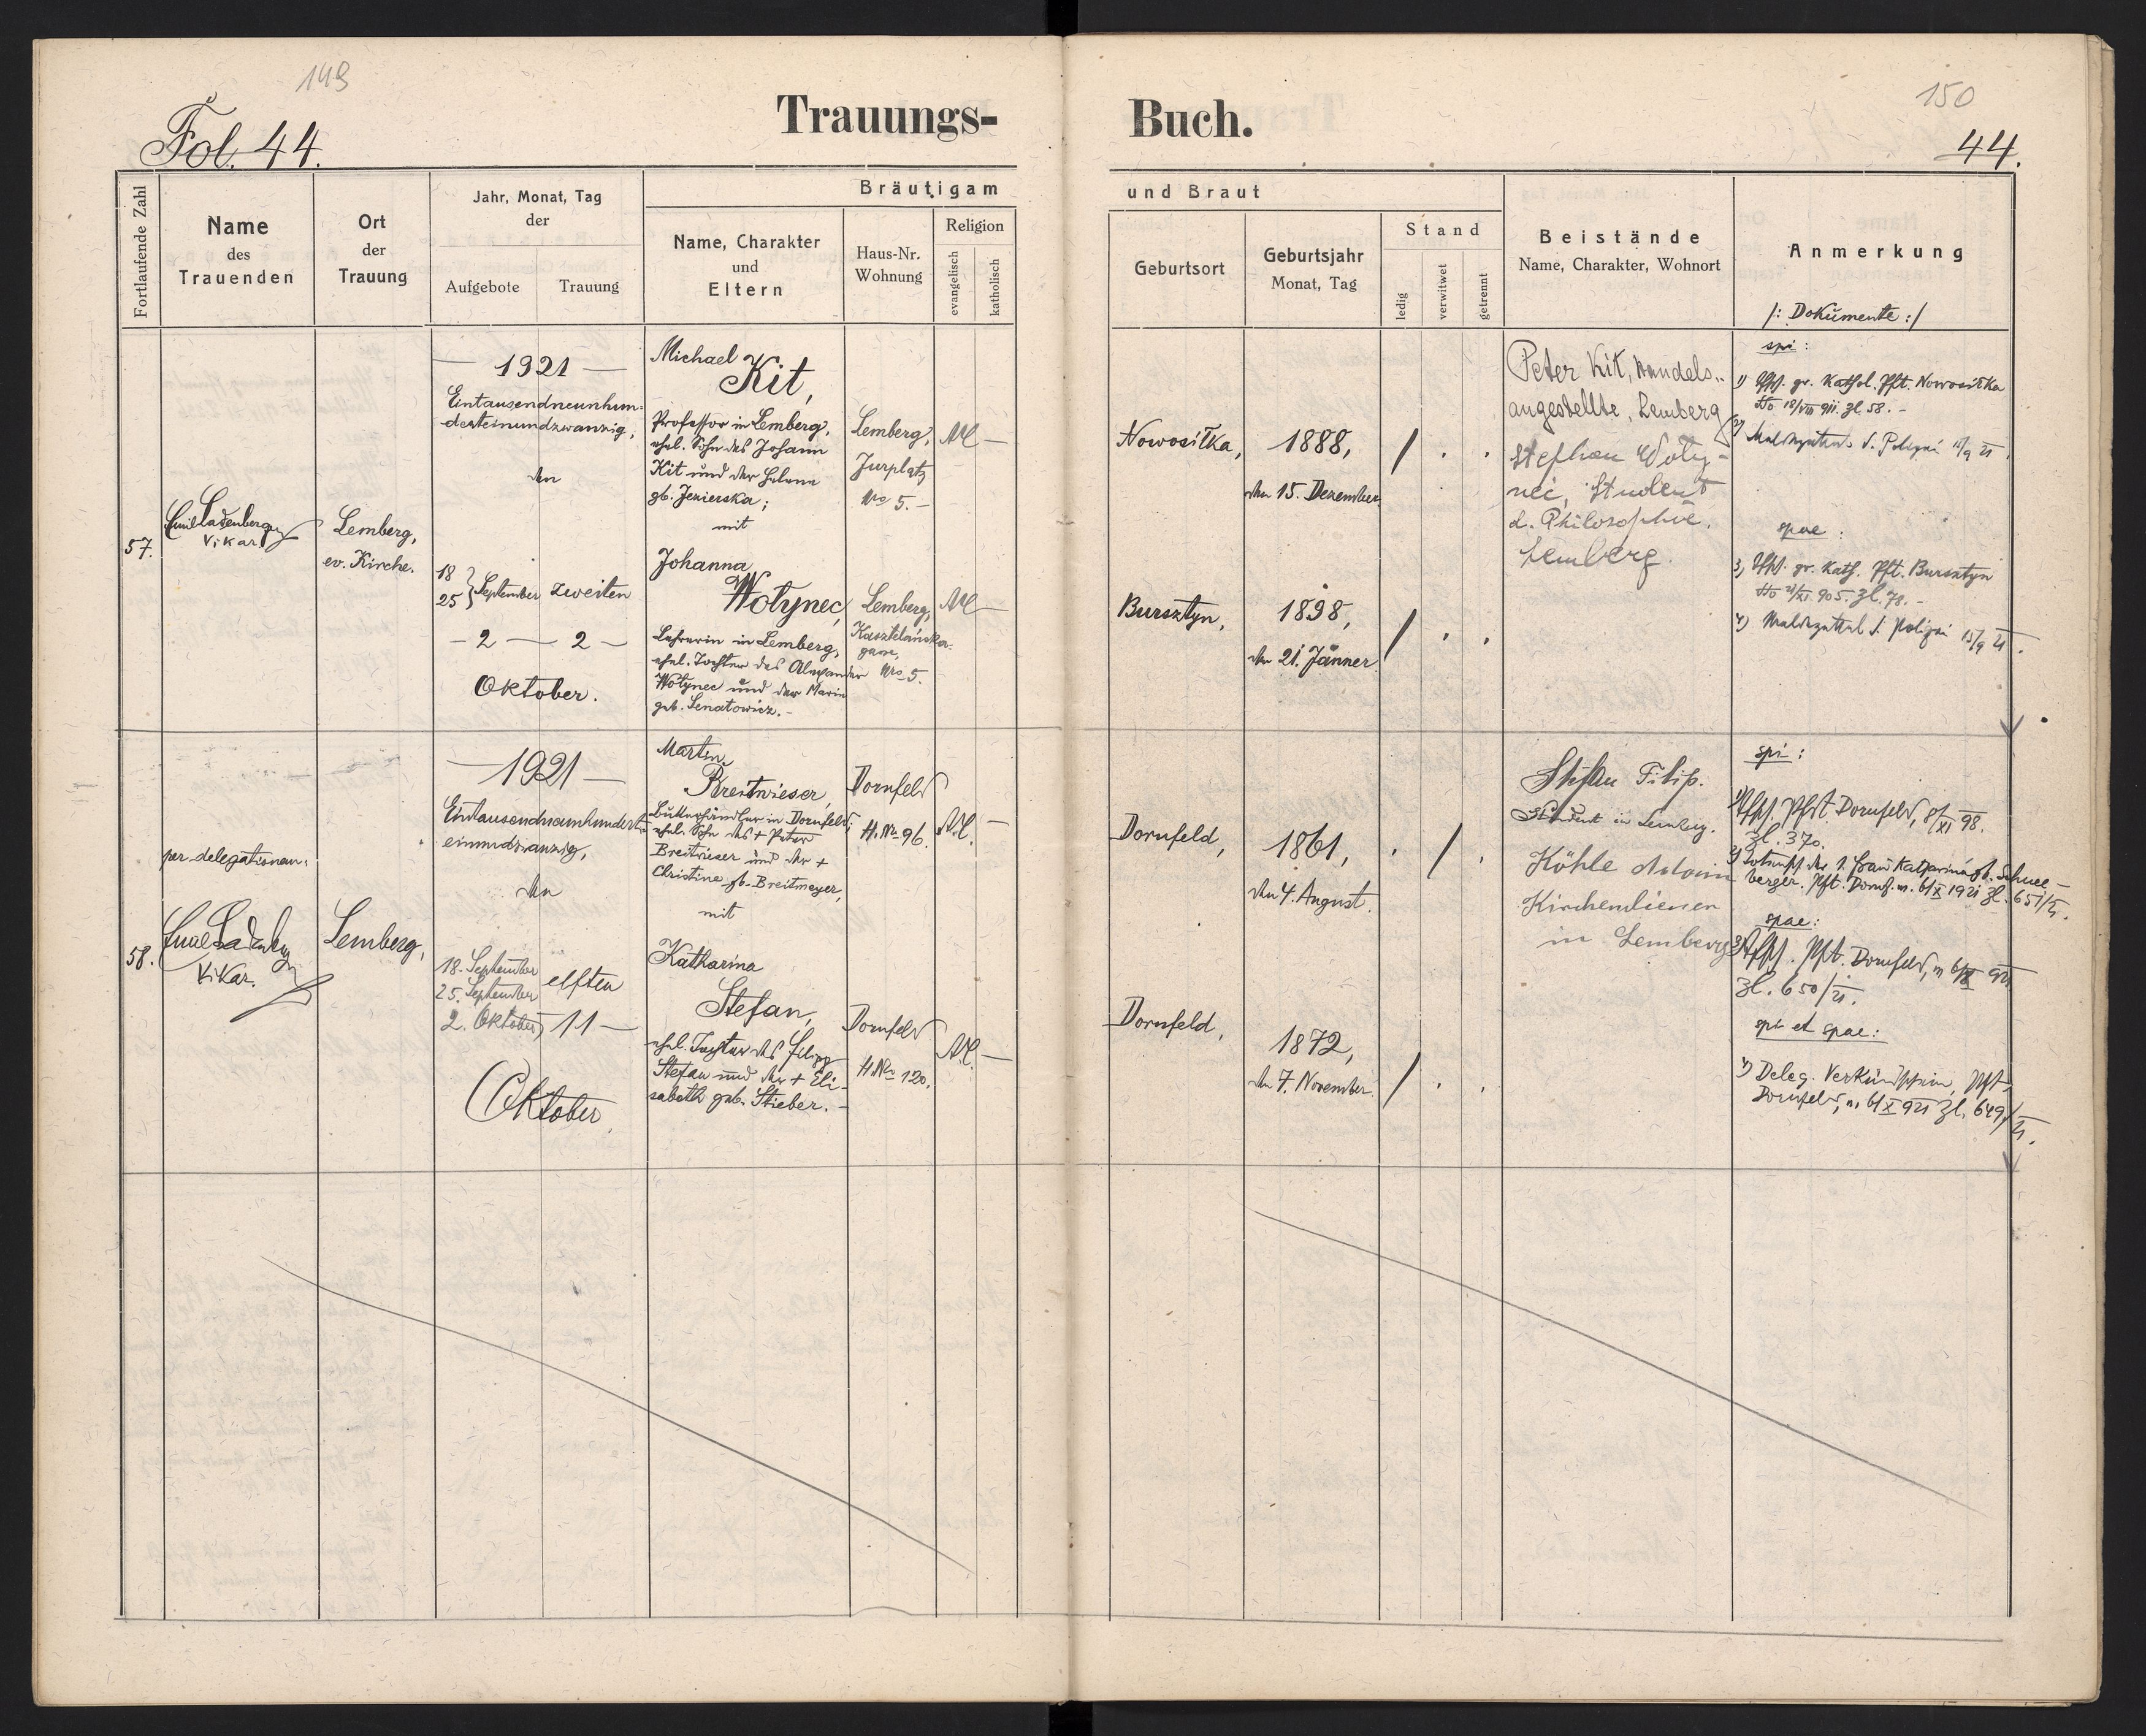 149
Fol. 44.
Trauungs-
Fortlaufende Zahl
Name
des
Trauenden
Ort
der
Trauung
Jahr, Monat, Tag
der
Aufgebote
Trauung
Bräutigam
Name, Charakter
und
Eltern
Haus-Nr.
Wohnung
Religion
evangelisch
katholisch
57.
Emil Ladenberger
Vikar.
Lemberg,
ev. Kirche.
— 1921 —
Eintausendneunhun-
derteinundzwanzig,
den
18
25 } September
zweiten
— 2 — 2 —
Oktober.
Michael
Kit,
Professor in Lemberg,
ehel. Sohn des Johann
Kit und der Helena
gb. Jezierska;
mit
Johanna
Wołynec,
Lehrerin in Lemberg,
ehel. Tochter des Alexander
Wołynec und der Maria
geb. Senatowicz.-
Lemberg,
Jurplatz
Nro 5.-
Lemberg,
Kasztelańska-
gasse,
Nro 5.
AC —
AC —
58.
per delegationem:
Emil Ladenberger
Vikar.
Lemberg,
— 1921 —
Eintausendneunhundert-
einundzwanzig,
den
18. September
25. September
2. Oktober,
elften
11 —
Oktober.
Martin
Breitwieser,
in Dornfeld,
ehel. Sohn des + Peter
Breitwieser und der +
Christine gb. Breitmeyer,
mit
Katharina
Stefan,
ehel. Tochter des Filipp
Stefan und der + Eli-
sabeth geb. Stieber.-
Dornfeld
H. Nro 96.
Dornfeld
H. Nro 120.
A.C. —
A.C. —
150
Buch.
44.
und Braut
Geburtsort
Geburtsjahr
Monat, Tag
Stand
ledig
verwitwet
getrennt
Beistände
Name, Charakter, Wohnort
Anmerkung
/: Dokumente :/
Nowosiłka,
1888,
den 15. Dezember.
/ . .
Bursztyn,
1898,
den 21. Jänner.
/ . .
Peter Kit, Handels-
angestellte, Lemberg
Stephan Woły-
nec, Student
d. Philosophie,
Lemberg.
spi:
1) gr. Kathol. Pft. Nowosiłka
dto 18/VIII 911. Zl 58.-
2) Meldezettel d. Polizei 15/9 21.
spae:
3) gr. Kath. Pft. Bursztyn
dto 21/XI 905. Zl. 78.-
4) Meldezettel d. Polizei 15/9 21.
Dornfeld,
1861,
den 4. August.
. / .
Dornfeld,
1872,
den 7. November.
/ . .
Stefan Filip.
Student in Lemberg.
Köhle Antoni
Kirchendiener
in Lemberg
spi:
1) Pft. Dornfeld, 8/XI 98.
Zl. 370.
2) Totensch. der 1. Frau Katharina gb. Schnee-
berger. Pft. Dornf. v. 6/X 1921 Zl. 651/21.
spae:
3) Pft. Dornfeld, v. 6/X 921
Zl. 650/21.
spi et spae:
4) Deleg. Verkündschein, Pft.
Dornfeld, v. 6/X 921 Zl. 649/21.